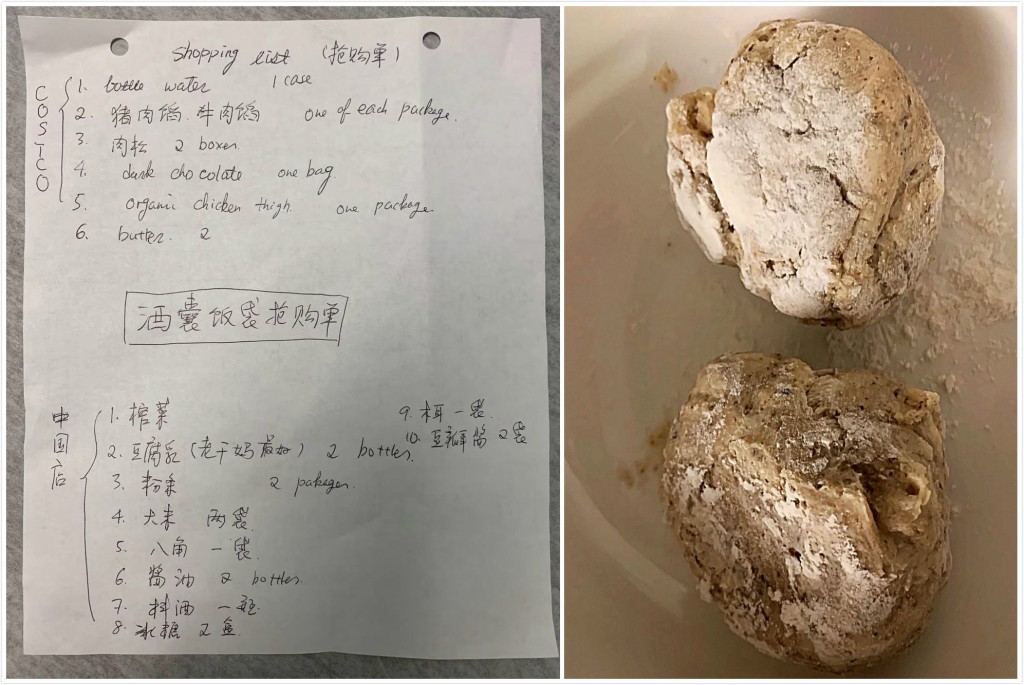 Shopping list (抢购单)
COSTCO
1. bottle water 1 case
2. 猪肉馅.牛肉馅 one of each package.
3. 肉松 2 boxes
4. dark chocolate one bag.
5. organic chicken thigh. one package.
6. butter. 2
酒囊饭袋抢购单
中国店
1. 榨菜
2. 豆腐乳(老干妈最好) 2 bottles.
3. 粉条 2 pakages.
4. 大米 两袋
5. 八角 一袋.
6. 酱油 2 bottles.
7. 料酒 一瓶.
8. 冰糖 2
9. 木耳 一袋.
10. 豆瓣酱 2袋